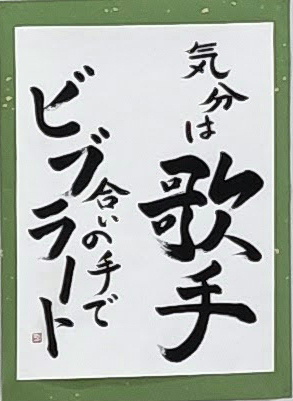 気分は
歌手
合いの手で
ビブラート